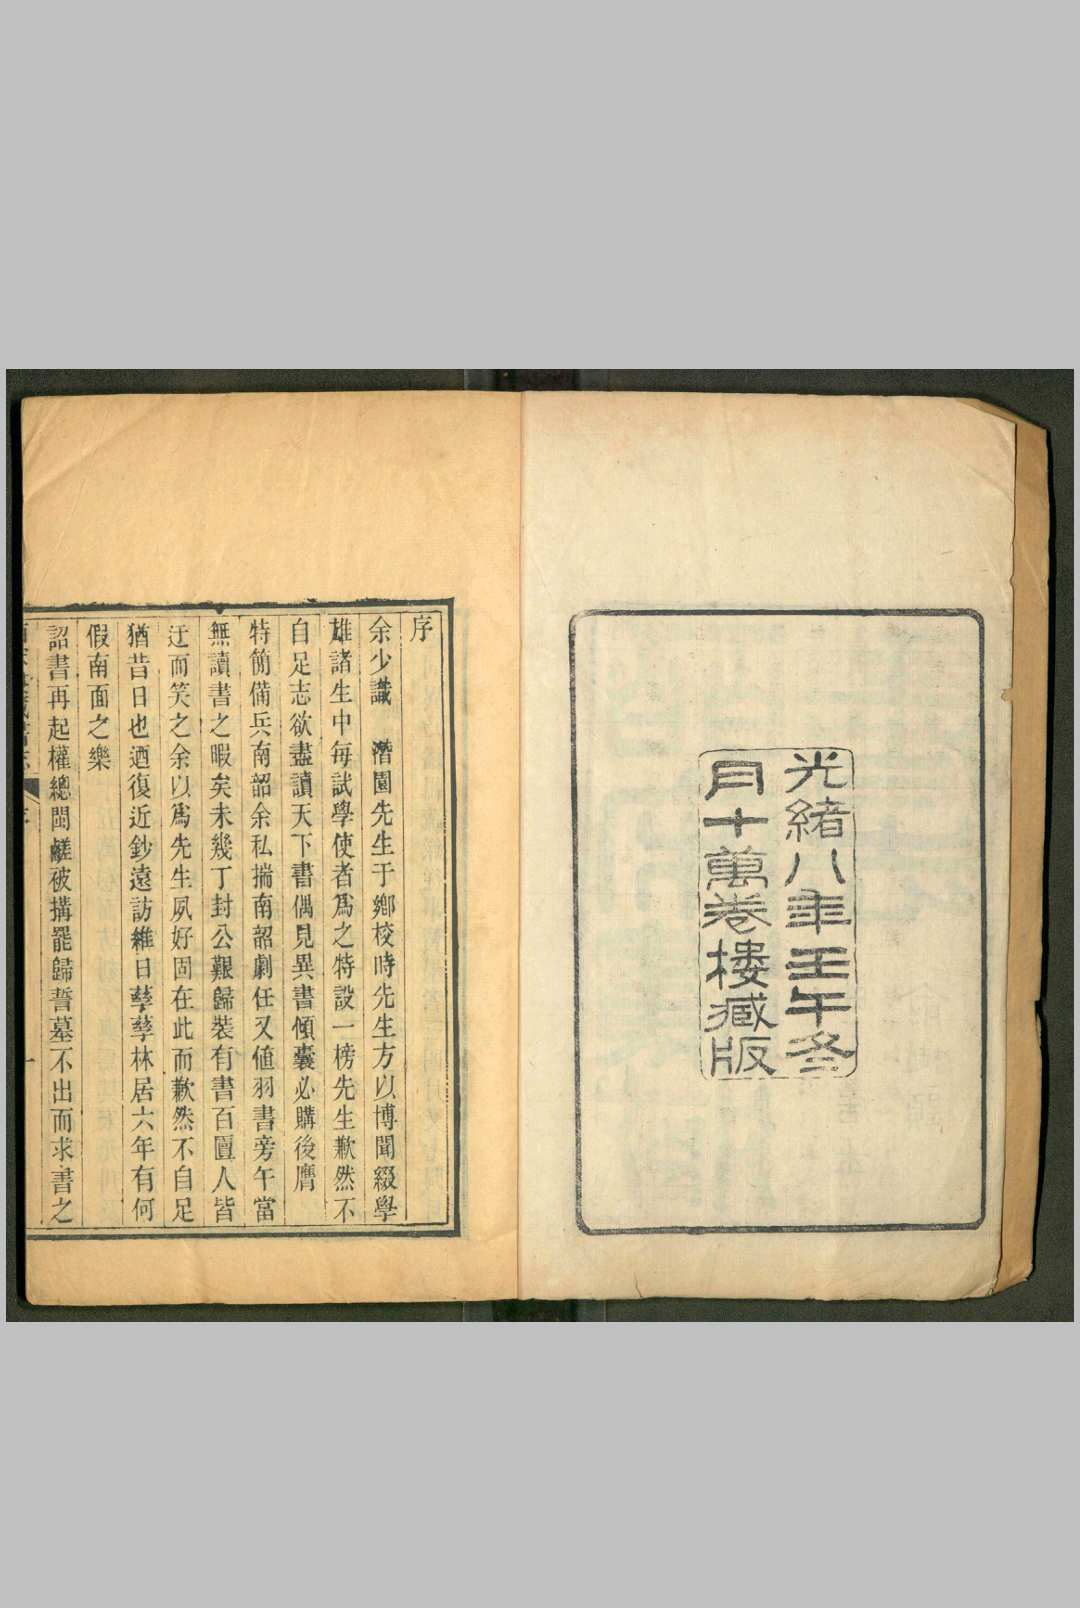 光緒八年壬午冬
月十萬卷樓藏版
序
余少識 潛園先生于鄉校時先生方以博聞綴學
雄諸生中每試學使者爲之特設一榜先生歉然不
自足志欲盡讀天下書偶見異書傾囊必購後膺
特簡備兵南韶余私揣南韶劇任又値羽書旁午當
無讀書之暇矣未幾丁封公艱歸裝有書百匵人皆
迂而笑之余以爲先生夙好固在此而歉然不自足
猶昔日也迺復近鈔遠訪維日孳孳林居六年有何
假南面之樂
詔書再起權總閩鹺被搆罷歸誓墓不出而求書之